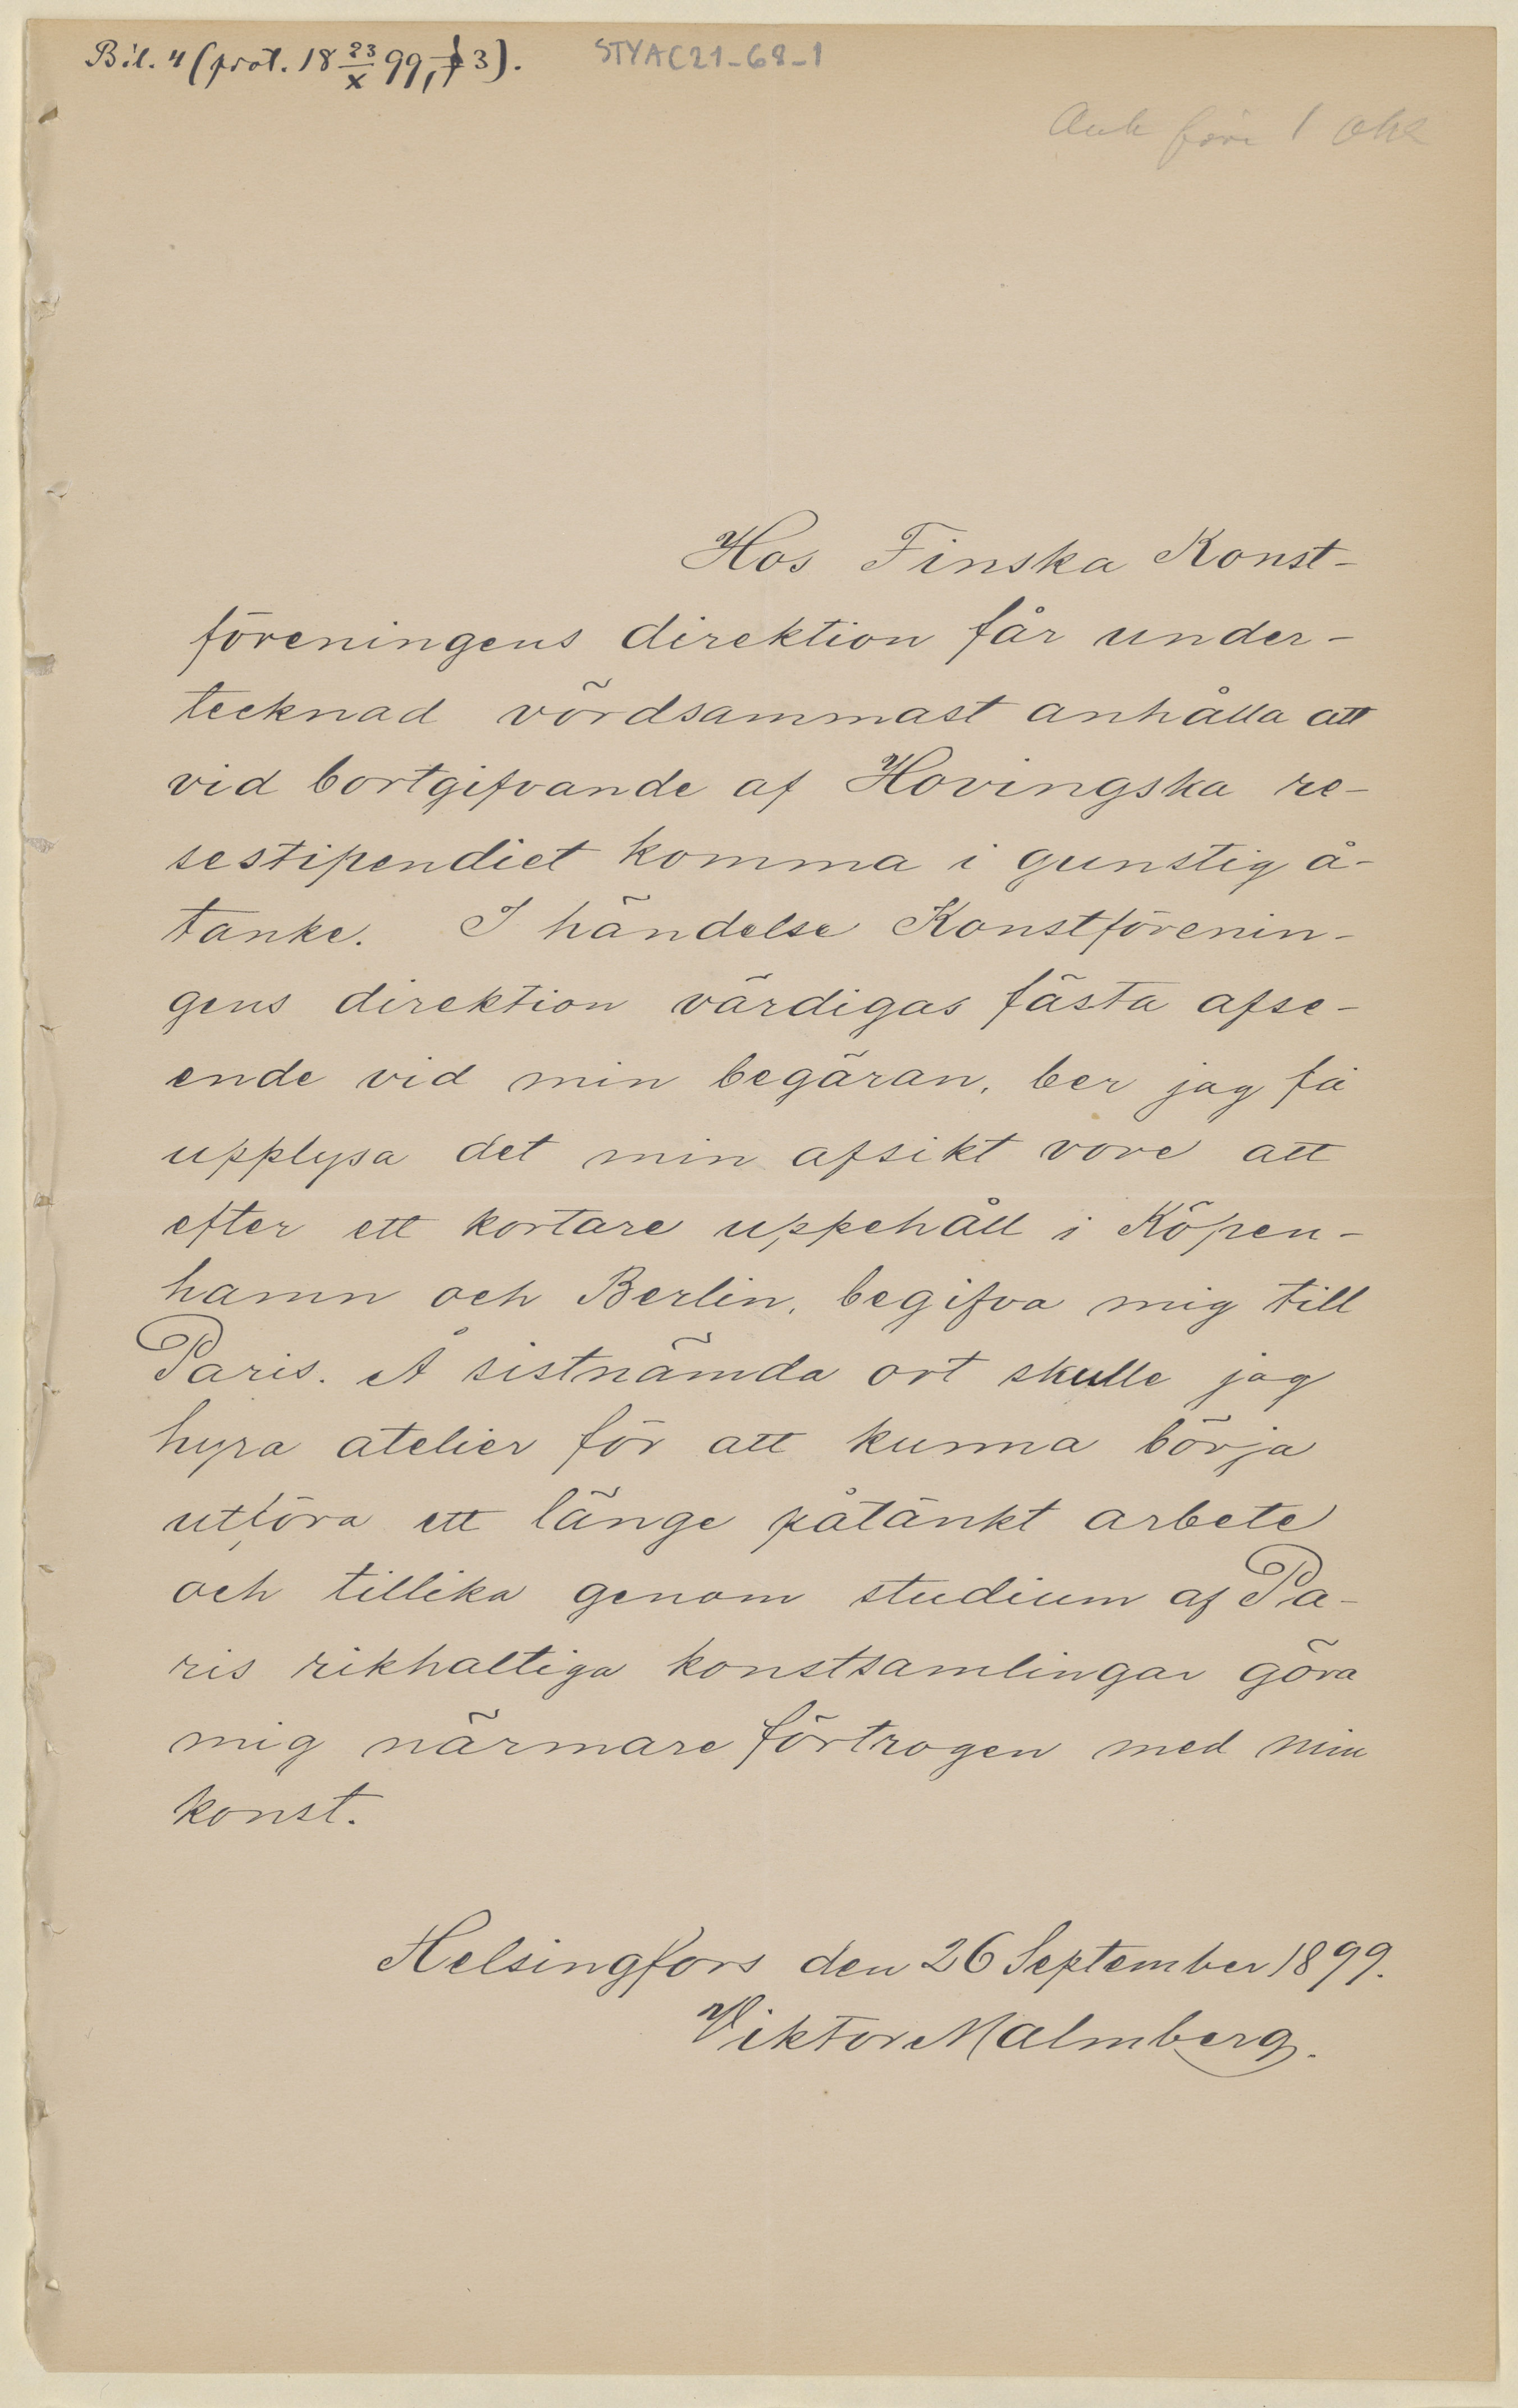 Bil. 4 (prot. 18 23/X 99, § 3).
STYAC21-68-1
Ank före 1 okt
Hos Finska Konst-
föreningens direktion får under-
tecknad vördsammast anhålla att
vid bortgifvande af Hovingska re-
sestipendiet komma i gunstig å-
tanke. I händelse Konstförenin-
gens direktion värdigas fästa afse-
ende vid min begäran, ber jag få
upplysa det min afsikt vore att
efter ett kortare uppehåll i Köpen-
hamn och Berlin, begifva mig till
Paris. Å sistnämda ort skulle jag
hyra atelier för att kunna börja
utföra ett länge påtänkt arbete
och tillika genom studium af Pa-
ris rikhaltiga konstsamlingar göra
mig närmare förtrogen med min
konst.
Helsingfors den 26 September 1899.
Viktor Malmberg.